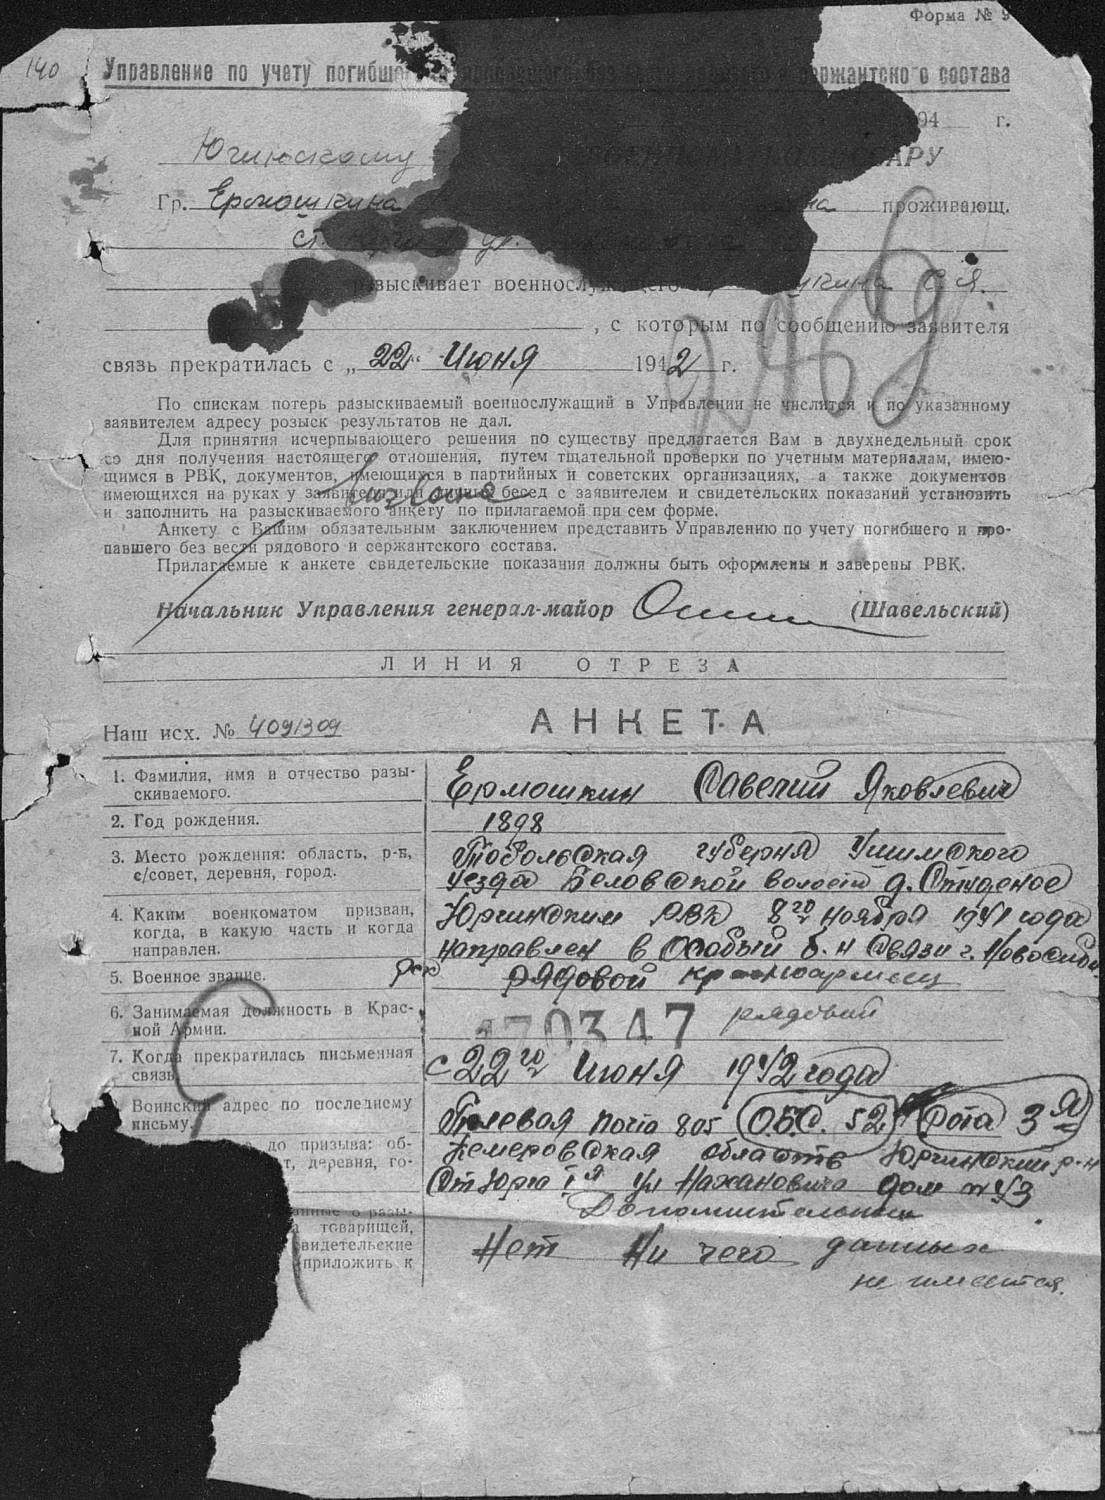 Форма № 9
140
Управление по учету погибшего и пропавшего без сержантского состава
194 г.
Юргинскому ВОЕННОМУ КОМИССАРУ
Гр. Ермошкина проживающ.
ст. Юрга ул.
разыскивает военнослужащего С. Я.
, с которым по сообщению заявителя
связь прекратилась с „22“ Июня 1942 г.
2469
По спискам потерь разыскиваемый военнослужащий в Управлении не числится и по указанному
заявителем адресу розыск результатов не дал.
Для принятия исчерпывающего решения по существу предлагается Вам в двухнедельный срок
со дня получения настоящего отношения, путем тщательной проверки по учетным материалам, имею-
щимся в РВК, документов, имеющихся в партийных и советских организациях, а также документов
имеющихся на руках у заявителя или личных бесед с заявителем и свидетельских показаний установить
и заполнить на разыскиваемого анкету по прилагаемой при сем форме.
Анкету с Вашим обязательным заключением представить Управлению по учету погибшего и про-
павшего без вести рядового и сержантского состава.
Прилагаемые к анкете свидетельские показания должны быть оформлены и заверены РВК.
Начальник Управления генерал-майор (Шавельский)
ЛИНИЯ ОТРЕЗА
Наш исх. № 4091309 АНКЕТА
1. Фамилия, имя и отчество разы-
скиваемого.
Ермошкин Савелий Яковлевич
2. Год рождения.
1898
3. Место рождения: область, р-н,
с/совет, деревня, город.
Тобольская губерня Ушимского
уезда Беловской волости д. Студеное
4. Каким военкоматом призван,
когда, в какую часть и когда
направлен.
Юргинским РВК 8го ноября 1941 года
направлен в Особый б-н Связи г. Новосиби
5. Военное звание.
рядовой красноармеец
6. Занимаемая должность в Крас-
ной Армии.
170347 рядовый
7. Когда прекратилась письменная
связь.
с 22го Июня 1942 года
Воинский адрес по последнему
письму.
Полевая почта 805 О.Б.С. 52 Рота 3я
до призыва: об-
т, деревня, го-
Кемеровская область Юргинский р-н
Ст Юрга 1я ул Кахановича дом № 43
анные о разы-
а товарищей,
видетельские
приложить к
Дополнительных
Нет Ни чего данных
не имеется.